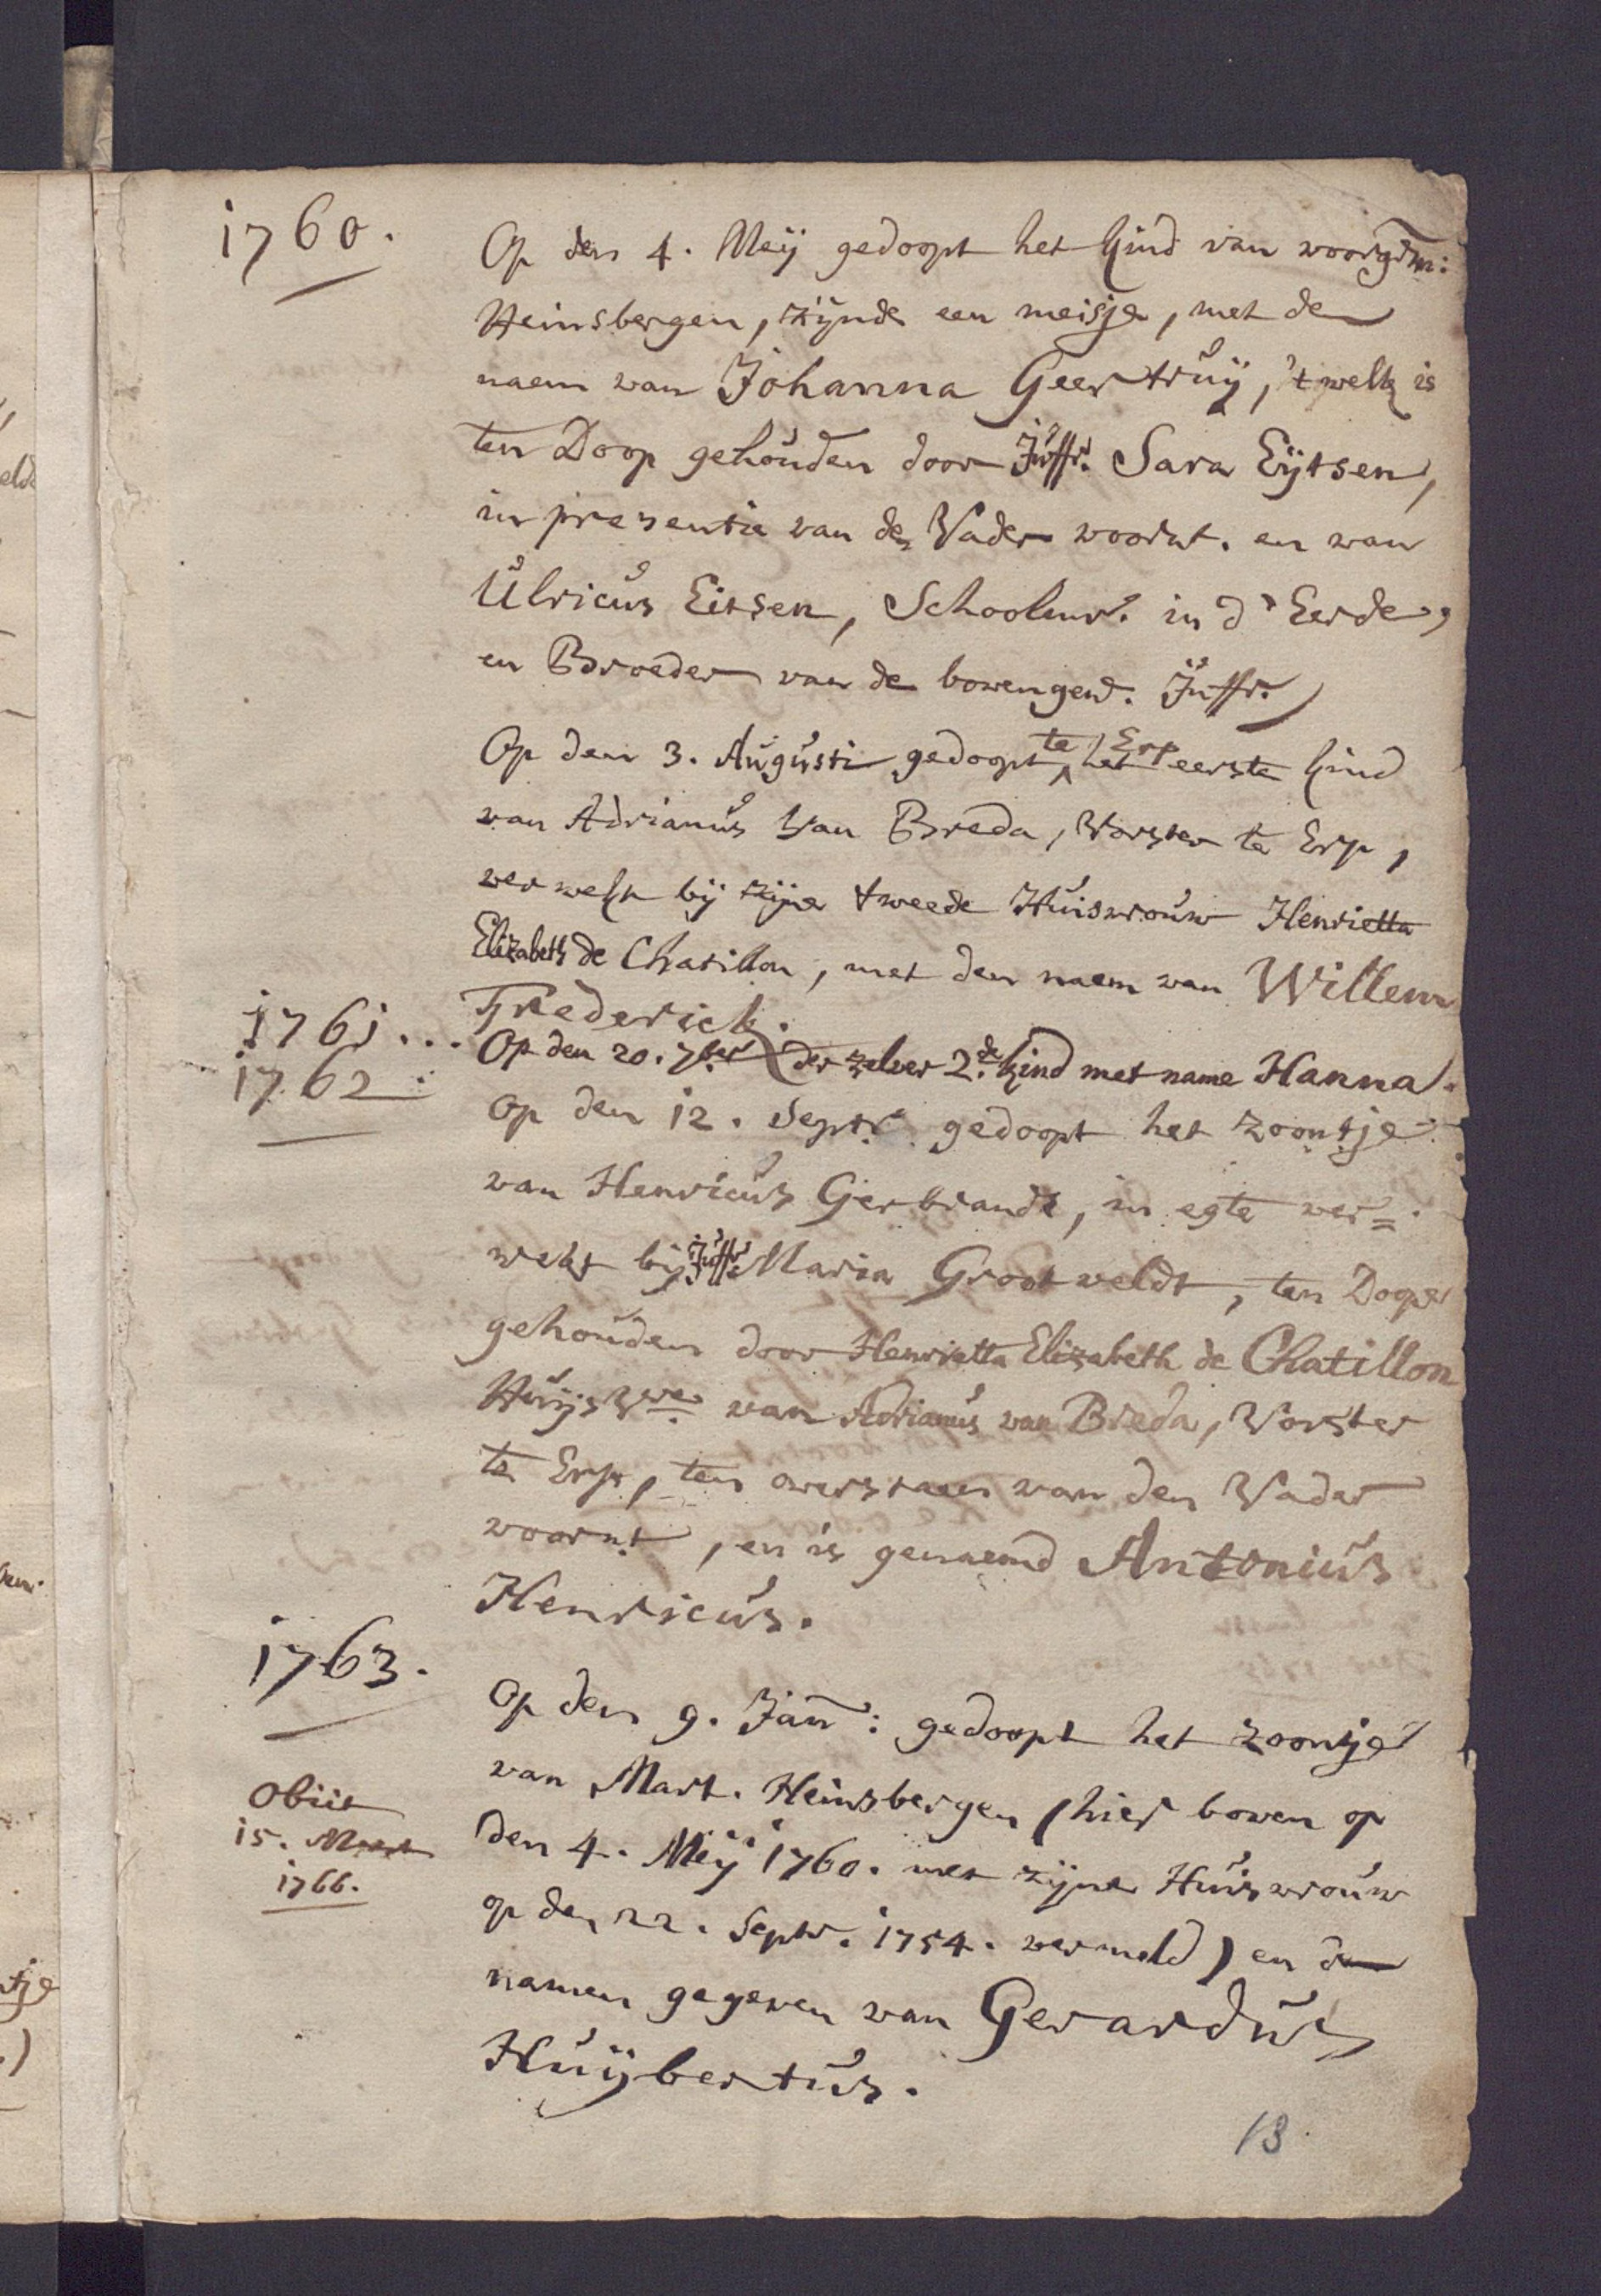 1760.
Op den 4. Meij gedoopt het kind van voorgem:
Heinsbergen, zijnde een meisje, met de
naem van Johanna Geertruij, 't welk is
ten Doop gehouden door Juffr. Sara Eijtsen,
in presentie van de Vader voornt. en van
Ulricus Eitsen, Schoolmr. in d' Eerde,
en Broeder van de bovengend. Juffr.
Op den 3. Augusti gedoopt te Erp het eerste kind
van Adrianus Van Breda, Vorster te Erp,
verwekt bij zijne tweede Huisvrouw Henrietta
Elizabeth de Chatillon, met den naem van Willem
Frederick.
1761...
Op den 20. 7ber der zelver 2.de kind met name Hanna.
1762.
Op den 12. Septr. gedoopt het zoontje
van Henricus Gerbrande, in egte ver=
wekt bij Juffr. Maria Grootveldt, ten Doope
gehouden door Henrietta Elizabeth de Chatillon
Huijsvre. van Adrianus van Breda, Vorster
te Erp, ten overstaen van den Vader
voornt, en is genaemd Antonius
Henricus.
1763.
Op den 9. Jan: gedoopt het zoontje
van Mart. Heinsbergen (hier boven op
den 4. Meij 1760. met zijne Huisvrouw
op den 22. Septr. 1754. vermeld) en de
namen gegeven van Gerardus
Huijbertus.
obiit
15. Maert
1766.
13